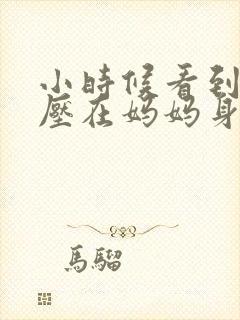 小時候看到
壓在媽媽身
馬騮